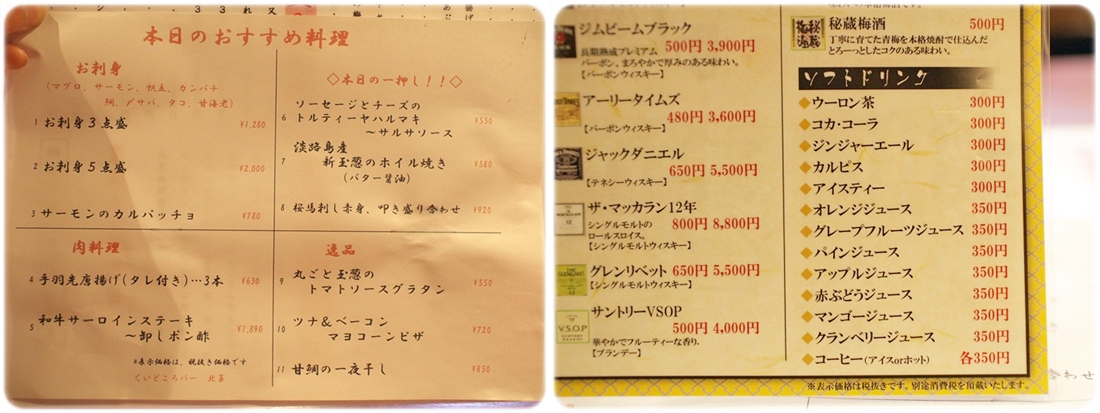 本日のおすすめ料理
お刺身
(マグロ、サーモン、帆立、カンパチ
鯛、〆サバ、タコ、甘海老)
1 お刺身3点盛 ¥1,280
2 お刺身5点盛 ¥2,000
3 サーモンのカルパッチョ ¥780
肉料理
4 手羽先唐揚げ(タレ付き)…3本 ¥630
5 和牛サーロインステーキ
～卸しポン酢 ¥1,890
※表示価格は、税抜き価格です
くいどころバー 北菜
◇本日の一押し!!◇
6 ソーセージとチーズの
トルティーヤハルマキ
～サルサソース ¥550
7 淡路島産
新玉葱のホイル焼き
(バター醤油) ¥580
8 桜馬刺し赤身、叩き盛り合わせ ¥920
逸品
9 丸ごと玉葱の
トマトソースグラタン ¥550
10 ツナ&ベーコン
マヨコーンピザ ¥720
11 甘鯛の一夜干し ¥850
ジムビームブラック
長期熟成プレミアム 500円 3,900円
バーボン。まろやかで厚みのある味わい。
【バーボンウィスキー】
アーリータイムズ
480円 3,600円
【バーボンウィスキー】
ジャックダニエル
650円 5,500円
【テネシーウィスキー】
ザ・マッカラン12年
シングルモルトの 800円 8,800円
ロールスロイス。
【シングルモルトウィスキー】
グレンリベット 650円 5,500円
【シングルモルトウィスキー】
サントリーVSOP
500円 4,000円
華やかでフルーティーな香り。
【ブランデー】
秘蔵梅酒 500円
丁寧に育てた青梅を本格焼酎で仕込んだ
とろーっとしたコクのある味わい。
ソフトドリンク
◆ウーロン茶 300円
◆コカ・コーラ 300円
◆ジンジャーエール 300円
◆カルピス 300円
◆アイスティー 300円
◆オレンジジュース 350円
◆グレープフルーツジュース 350円
◆パインジュース 350円
◆アップルジュース 350円
◆赤ぶどうジュース 350円
◆マンゴージュース 350円
◆クランベリージュース 350円
◆コーヒー(アイスorホット) 各350円
※表示価格は税抜きです。別途消費税を頂戴いたします。